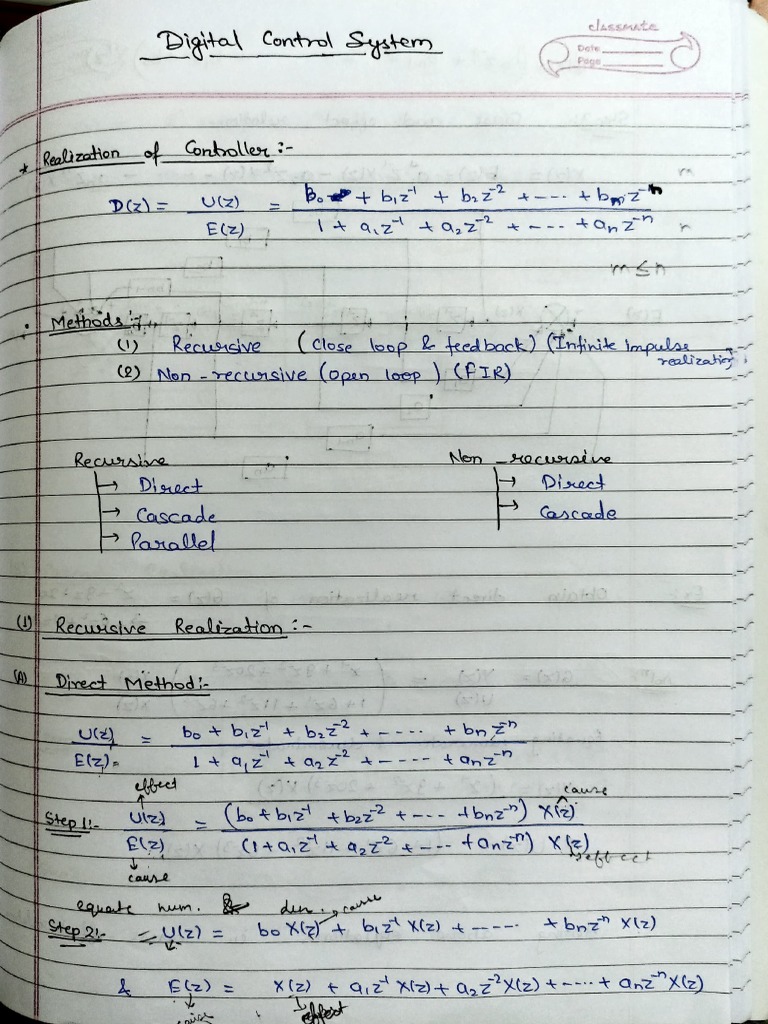 classmate
Date
Page
Digital Control System
* Realization of Controller :-
D(z) = U(z)/E(z) = (b₀ + b₁z⁻¹ + b₂z⁻² + ---- + bₘz⁻ⁿ)/(1 + a₁z⁻¹ + a₂z⁻² + ---- + aₙz⁻ⁿ)
m ≤ n
Methods :-
(1) Recursive (Close loop & feedback) (Infinite impulse realization)
(2) Non-recursive (open loop) (FIR)
Recursive Non-recursive
→ Direct → Direct
→ Cascade → Cascade
→ Parallel
(1) Recursive Realization :-
(A) Direct Method:-
U(z)/E(z) = (b₀ + b₁z⁻¹ + b₂z⁻² + ---- + bₙz⁻ⁿ)/(1 + a₁z⁻¹ + a₂z⁻² + ---- + aₙz⁻ⁿ)
effect cause
Step 1:- U(z)/E(z) = (b₀ + b₁z⁻¹ + b₂z⁻² + ---- + bₙz⁻ⁿ) X(z)/(1 + a₁z⁻¹ + a₂z⁻² + ---- + aₙz⁻ⁿ) X(z)
cause effect
equate num. & den. cause
Step 2:- U(z) = b₀ X(z) + b₁z⁻¹ X(z) + ---- + bₙz⁻ⁿ X(z)
& E(z) = X(z) + a₁z⁻¹ X(z) + a₂z⁻² X(z) + ---- + aₙz⁻ⁿ X(z)
cause effect